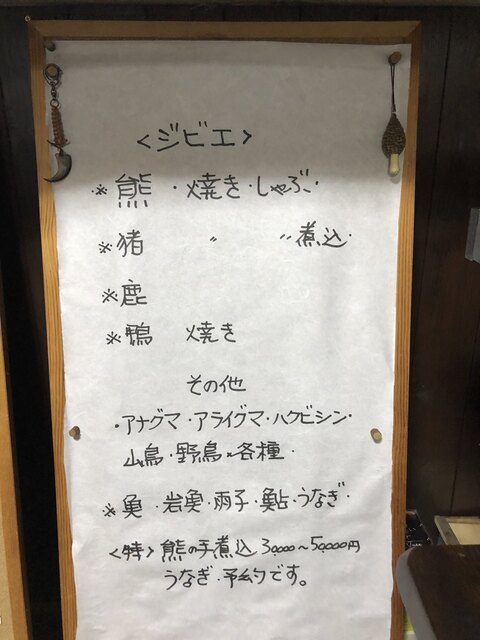 <ジビエ>
※熊・焼き・しゃぶ・
※猪 〃 〃 煮込・
※鹿
※鴨 焼き
その他
・アナグマ・アライグマ・ハクビシン・
山鳥・野鳥各種・
※魚・岩魚・雨子・鮎・うなぎ・
<特>熊の手煮込 30,000〜50,000円
うなぎ・予約です。